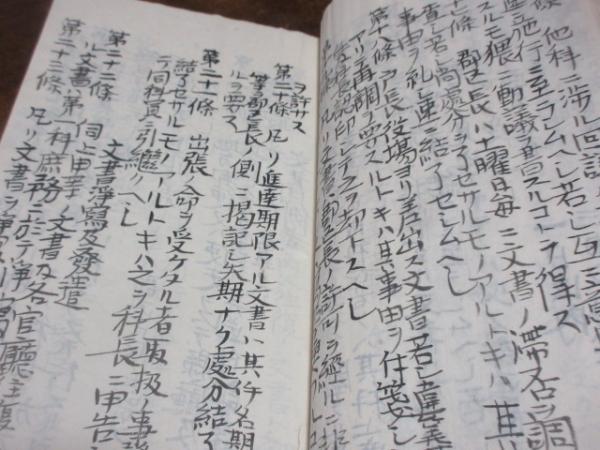 條 他科ニ渉ル回議
施行ニ至ラシムヘシ若シ互ニ意
スルモ猥ニ動議ヲ為スルコトヲ得ス
條 郡長ハ土曜日毎ニ文書ノ滞否ヲ調
査シ若シ尚處分ヲ了セサルモノアルトキハ其
事由ヲ糺シ速ニ結了セシムヘシ
第十八條 戸長役場ヨリ差出ス文書若シ違義
アリテ再調ヲ要スルトキハ其事由ヲ付箋シ
認印シテ之ヲ却下スヘシ
文書ハ郡長ノ許可ヲ經ルニ非
ヲ許サス
第二十條 凡ソ進達期限アル文書ハ其件名期
等郡長ノ側ニ掲記シ失期ナク處分結了
ルヲ要ス
第二十一條 出張ノ命ヲ受ケタル者取扱ノ事務
結了セサルモノアルトキハ之ヲ科長ニ申告シ
テ同科員ニ引繼クヘシ
文書淨寫及發遣
第二十二條 伺上申等ノ文書及各官廳往復
ル文書ハ第一科庶務ニ於テ淨寫
第二十三條 凡ソ文書ヲ淨寫